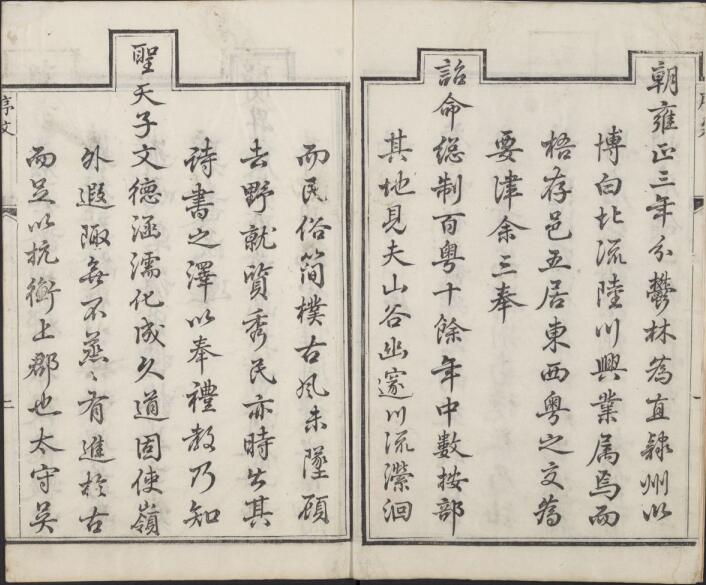 朝雍正三年分鬱林為直隸州以
博白北流陸川興業属焉而
梧存邑五居東西粤之交為
要津余三奉
詔命總制百粤十餘年中數按部
其地見夫山谷幽邃川流瀠洄
而民俗簡樸古風未墜顧
去野就質秀民亦時出其
詩書之澤以奉禮教乃知
聖天子文德涵濡化成久道固使嶺
外遐陬無不蒸〻有進於古
而足以抗衡上郡也太守吴
序文
二